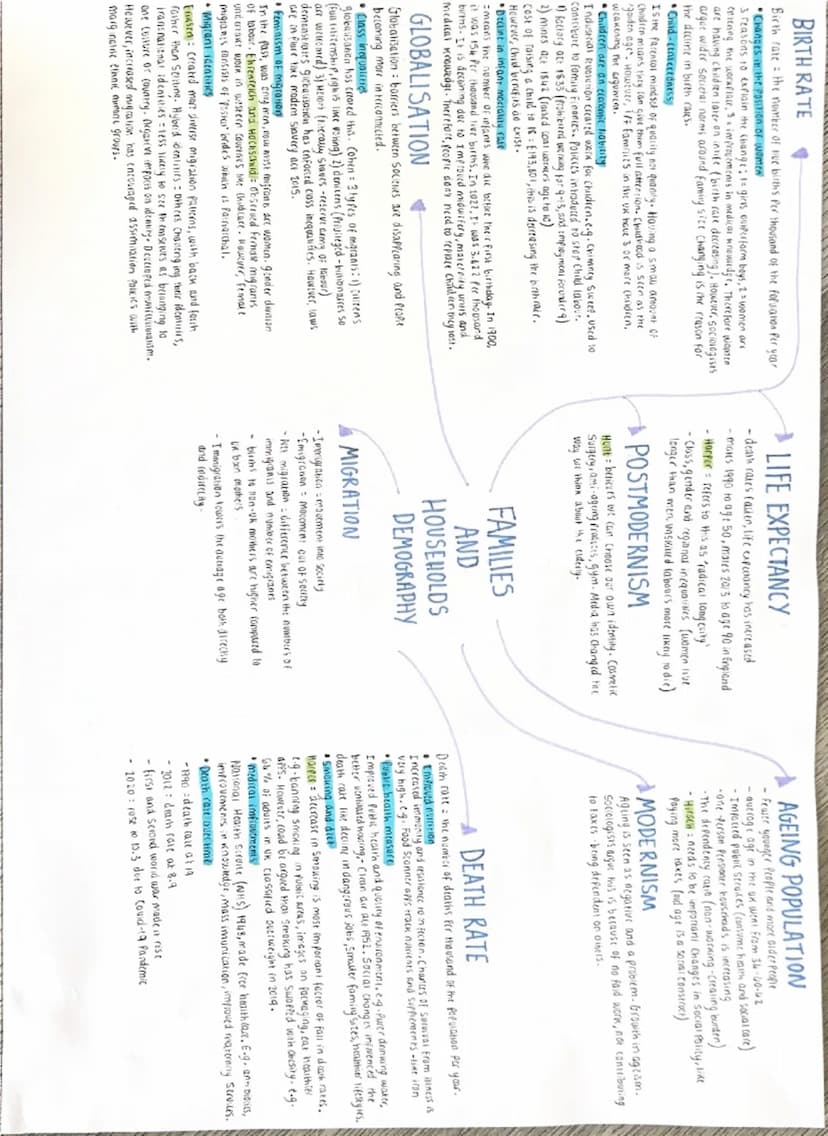 FAMILIES
AND
HOUSEHOLDS
DEMOGRAPHY
BIRTH RATE
Birth rate = the number of live births per thousand of the population per year
• Changes in the position of women
3 reasons to explain the change: 1= girls outperform boys, 2= women are
entering the workforce, 3= improvements in medical knowledge. Therefore women
are having children later on in life (birth rate decreasing). However, sociologists
argue wider societal norms around family size changing is the reason for
the decline in birth rates.
• Child-centeredness
Is the parental mindset of quality not quantity. Having a small amount of
children means they can give them full attention. Childhood is seen as the
'golden age'. However, 1/7 families in the UK have 3 or more children,
weakening the argument.
• Children as an economic liability
Industrial Revolution created work for children, e.g. Chimney Sweep, used to
contribute to family finances. Policies introduced to stop child labour.
1) factory act 1833 (prohibited working for 9-13, said employment boundary)
2) mines act 1842 (could not women aged 10)
cost of raising a child to 18 = £193,801, this is decreasing the birth rate.
However, child benefits do exist.
• Decline in infant mortality rate
=means the number of infants who die before their first birthday. In 1900,
it was 154 per thousand live births. In 2021, it was 3.422 per thousand
births. It is declining due to improved midwifery, maternity units and
medical knowledge. Therefore, people don't need to replace children they lost.
LIFE EXPECTANCY
- death rates fallen, life expectancy has increased
- males 1990 to age 50, males 2013 to age 90 in England
- Harper = refers to this as 'radical longevity'
- Class, gender and regional inequalities (women live
longer than men, unskilled labours more likely to die)
AGEING POPULATION
- Fewer younger people and more older people
- average age in the UK went from 34-40-42
- Impacted public services (consume health and social care)
- one-person pensioner households is increasing
- The dependency ratio (non-working - creating burden)
- Hirsch = needs to be important changes in social policy, like
paying more taxes (old age is a social construct)
POSTMODERNISM
Hunt = believes we can choose our own identity. Cosmetic
surgery, anti-ageing products, gym. Media has changed the
way we think about the elderly.
MODERNISM
Ageing is seen as negative and a problem. Growth in ageism.
Sociologists argue this is because of no paid work, not contributing
to taxes - being dependent on others.
GLOBALISATION
Globalisation = barriers between societies are disappearing and people
becoming more interconnected.
• Class inequalities
globalisation has created this. Cohen = 3 types of migrants: 1) Citizens
(full citizenship, rights like voting) 2) denizens (privileged - billionaires so
are welcomed) 3) Helots (literally slaves - reserve army of labour)
demonstrates globalisation has enforced class inequalities. However, laws
are in place like modern slavery act 2015.
• Feminism of migration
In the past, was only men, now most migrants are women. gender division
of labour. Ehrenreich and Hochschild = observed female migrants
care work in western countries like childcare. However, female
migrants consist of 'postal' brides which is patriarchal.
• Migrant identities
Eriksen = Created more diverse migration patterns, with back and forth
rather than settling. Hybrid identities = others challenging their identities,
transnational identities = less likely to see themselves as belonging to
one culture or country. Negative impacts on identity. Developed multiculturalism.
However, increased migration has encouraged assimilation policies with
many native ethnic minority groups.
MIGRATION
- Immigration = movement into society
- Emigration = movement out of society
- Net migration = difference between the numbers of
immigrants and number of emigrants
- births to non-UK mothers are higher compared to
UK born mothers
- Immigration lowers the average age both directly
and indirectly.
DEATH RATE
Death rate = the number of deaths per thousand of the population per year.
• Improved nutrition
Increased immunity and resilience to infection. Chances of survival from illness is
very high. e.g. Food scanner apps track nutrients and supplements - like iron
• Public health measures
Improved public health and quality of environment. e.g. purer drinking water,
better ventilated housing. Clean air act 1952. Social changes influenced the
death rate like decline in dangerous jobs, smaller family sizes, healthier lifestyles.
• Smoking and diet
Harper = decrease in smoking is most important factor of fall in death rates.
e.g. banning smoking in public areas, images on packaging, eat healthier
apps. However, could be argued that smoking has swapped with obesity - e.g.
64% of adults in UK classified overweight in 2019.
• Medical improvements
National Health Service (NHS) 1948, made free healthcare. E.g. antibiotics,
improvements in knowledge, mass immunisation, improved maternity services.
• Death rate overtime
- 1990 = death rate at 19
- 2012 = death rate at 8.9
- First and second world war made it rise
- 2020 = rise to 10.3 due to Covid-19 pandemic